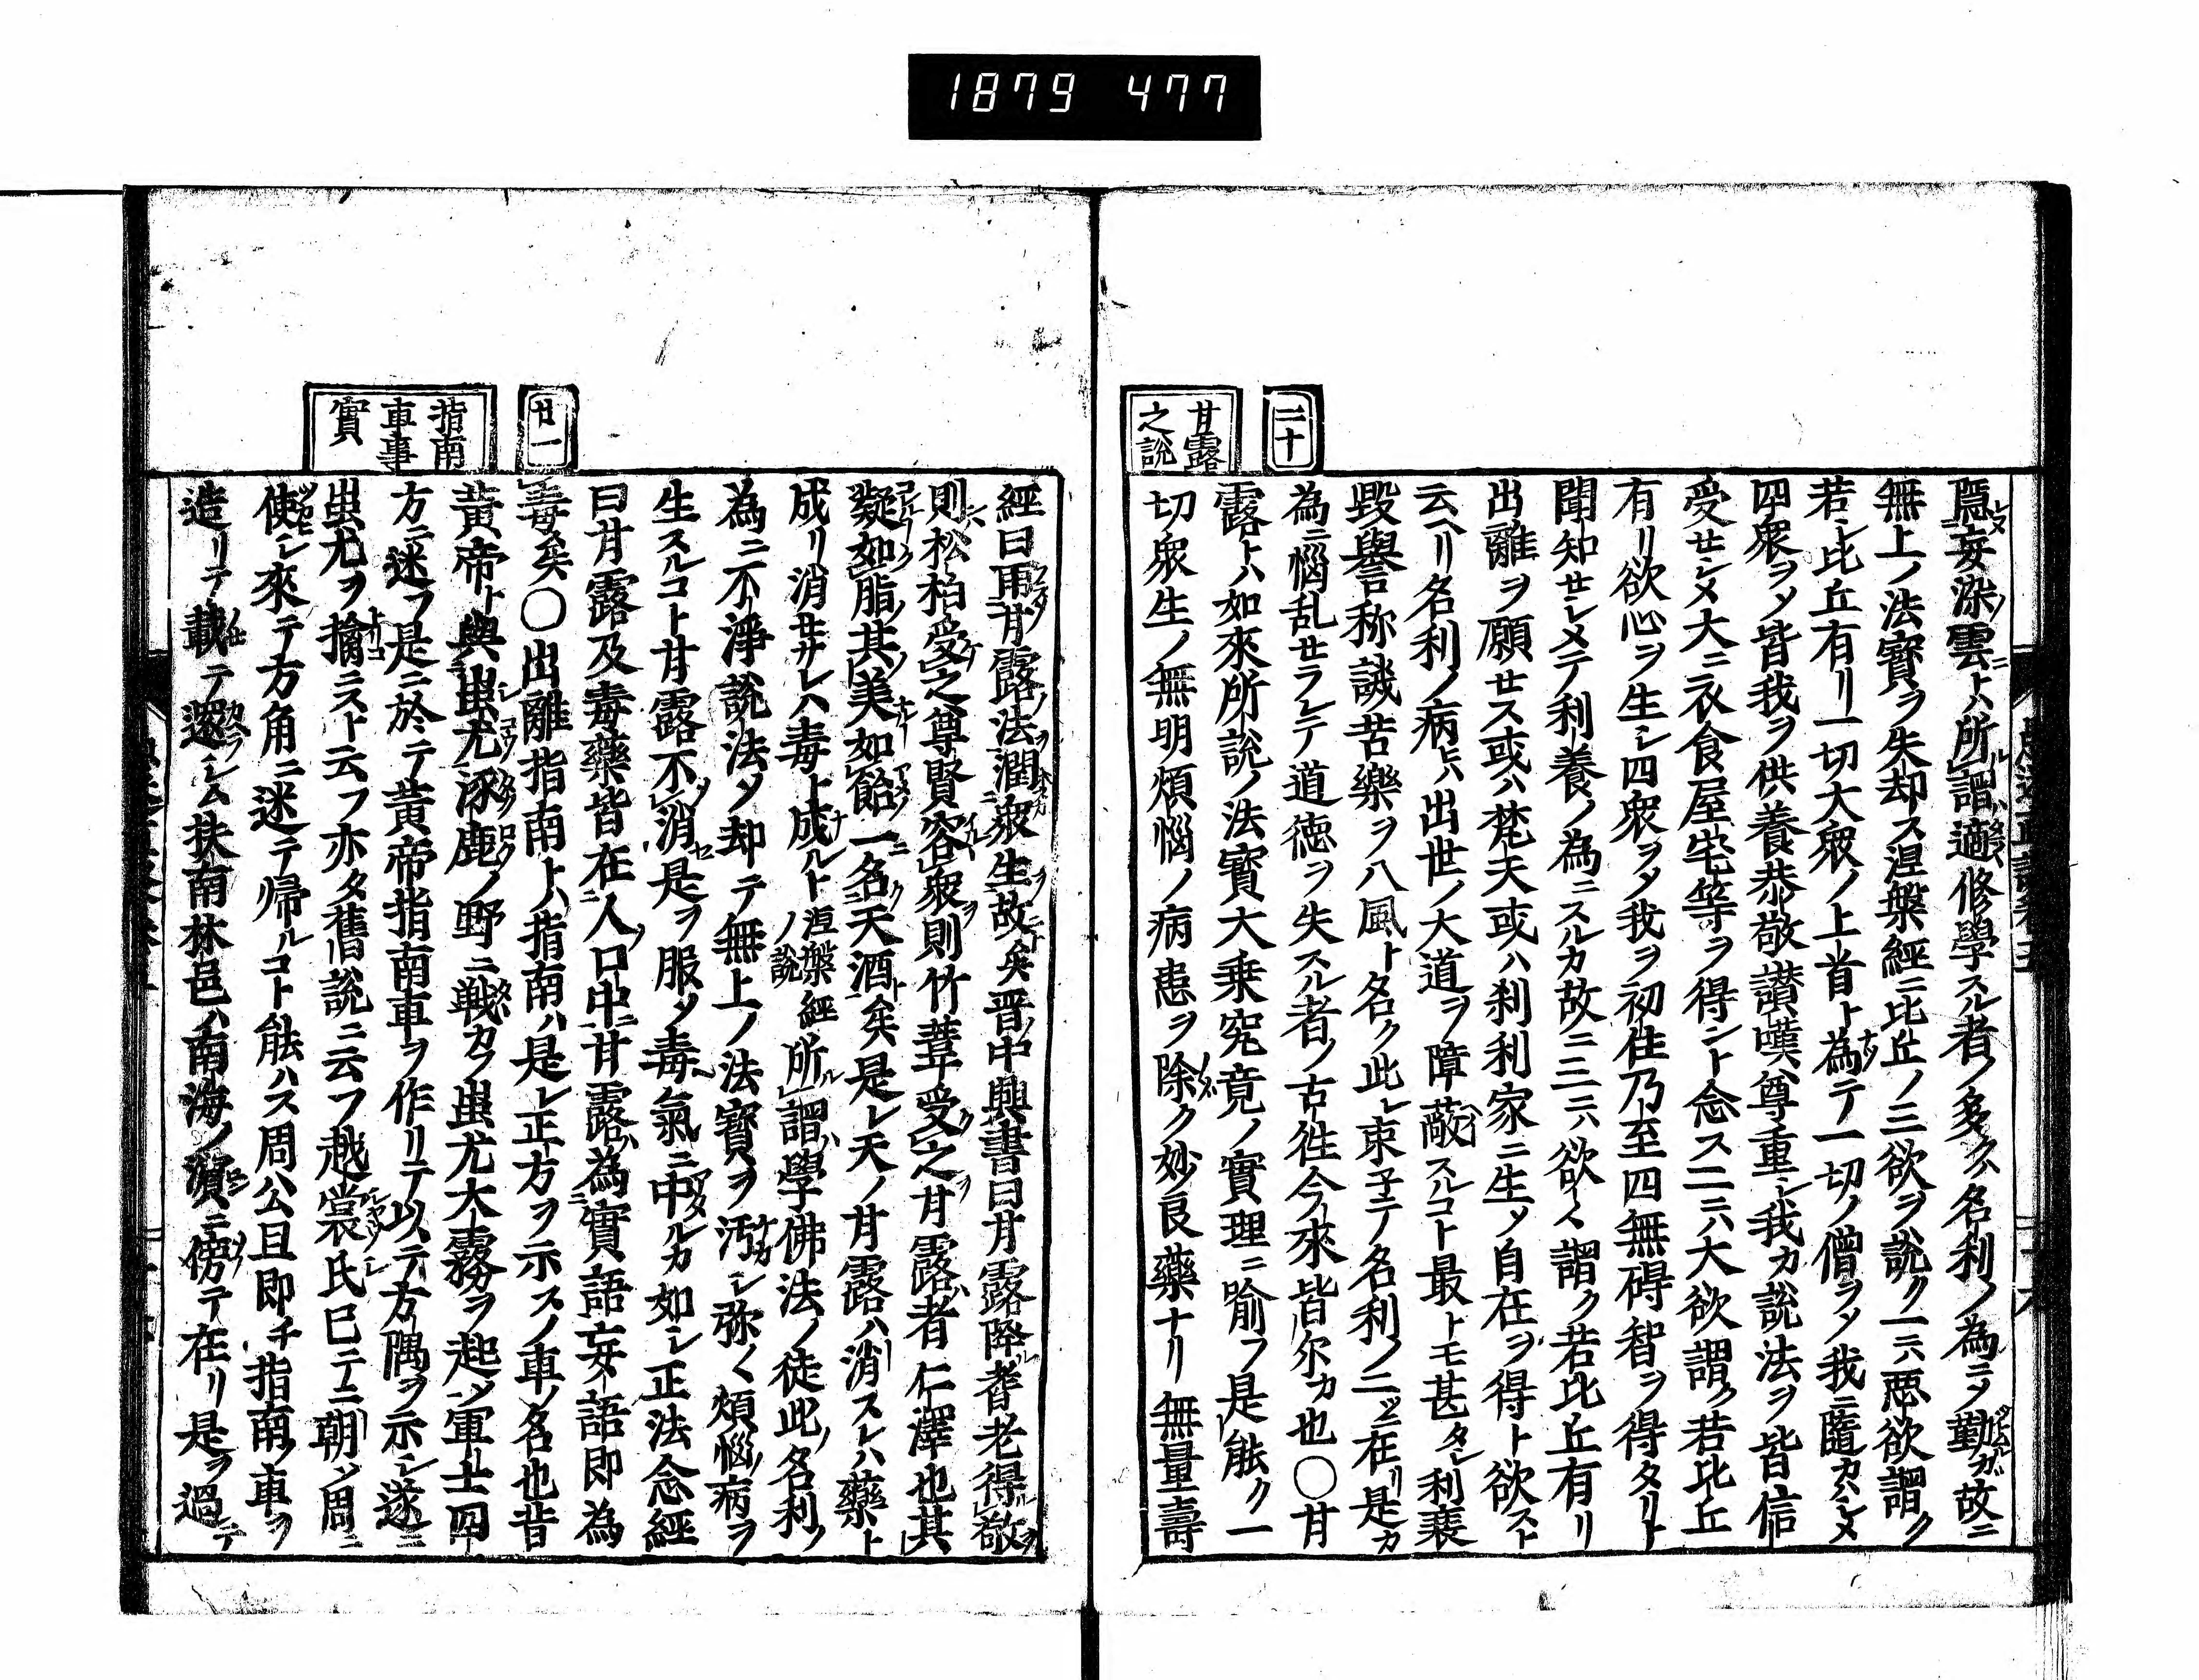 1879 477
二十
甘露
之説
隠妄染雲ニトハ所謂適修學スル者ノ多クハ名利ノ為ニシ勤ルガ故ニ
無上ノ法寳ヲ失却ス涅槃經ニ比丘ノ三欲ヲ説ク一ニハ悪欲謂ク
若シ比丘有リ一切大衆ノ上首ト為テ一切ノ僧ヲシテ我ニ隨カハシメ
四衆ヲシテ皆我ヲ供養恭敬讃嘆尊重シ我カ説法ヲ皆信
受セシメ大ニ衣食屋宅等ヲ得ント念ス二ニハ大欲謂ク若比丘
有リ欲心ヲ生シ四衆ヲシテ我ヲ初住乃至四無碍智ヲ得タリト
聞知セシメテ利養ノ為ニスルカ故ニ三ニハ欲々謂ク若比丘有リ
出離ヲ願セス或ハ梵天或ハ刹利家ニ生シ自在ヲ得ト欲スト
云ヘリ名利ノ病ヒハ出世ノ大道ヲ障蔽スルコト最トモ甚タシ利衰
毀譽称譏苦樂ヲ八風ト名ク此レ束子テ名利ノ二ツニ在リ是カ
為ニ惱乱セラレテ道徳ヲ失スル者ノ古往今來皆尔カ也〇甘
露トハ如來所説ノ法寳大乗究竟ノ實理ニ喩フ是能ク一
切衆生ノ無明煩惱ノ病患ヲ除ク妙良藥ナリ無量壽
廿一
指南
車事
實
經曰雨甘露法潤衆生故矣晋中興書曰甘露降耆老得敬
則松柏受之尊賢容衆則竹葦受之甘露者仁澤也其
凝如脂其美如飴一名天酒矣是レ天ノ甘露ハ消スレハ藥ト
成リ消セサレハ毒ト成ルト涅槃經ノ説所謂學佛法ノ徒此ノ名利ノ
為ニ不淨説法シ却テ無上ノ法寳ヲ汚シ弥々煩惱ノ病ヲ
生スルコト甘露不消是ヲ服シ毒氣ニ中ルカ如シ正法念經
曰甘露及毒藥皆在人口中甘露為實語妄語即為
毒矣〇出離指南トハ指南ハ是レ正方ヲ示スノ車ノ名也昔
黄帝ト與蚩尤涿鹿ノ野ニ戦カフ蚩尤大霧ヲ起シ軍士四
方ニ迷フ是ニ於テ黄帝指南車ヲ作リテ以テ方隅ヲ示シ遂ニ
蚩尤ヲ擒ニスト云フ亦タ舊説ニ云フ越裳氏已テニ朝シ周ニ
使シ來テ方角ニ迷テ帰ルコト能ハス周公旦即チ指南ノ車ヲ
造リテ載テ還シム扶南林邑ハ南海ノ濱ニ傍テ在リ是ヲ過テ